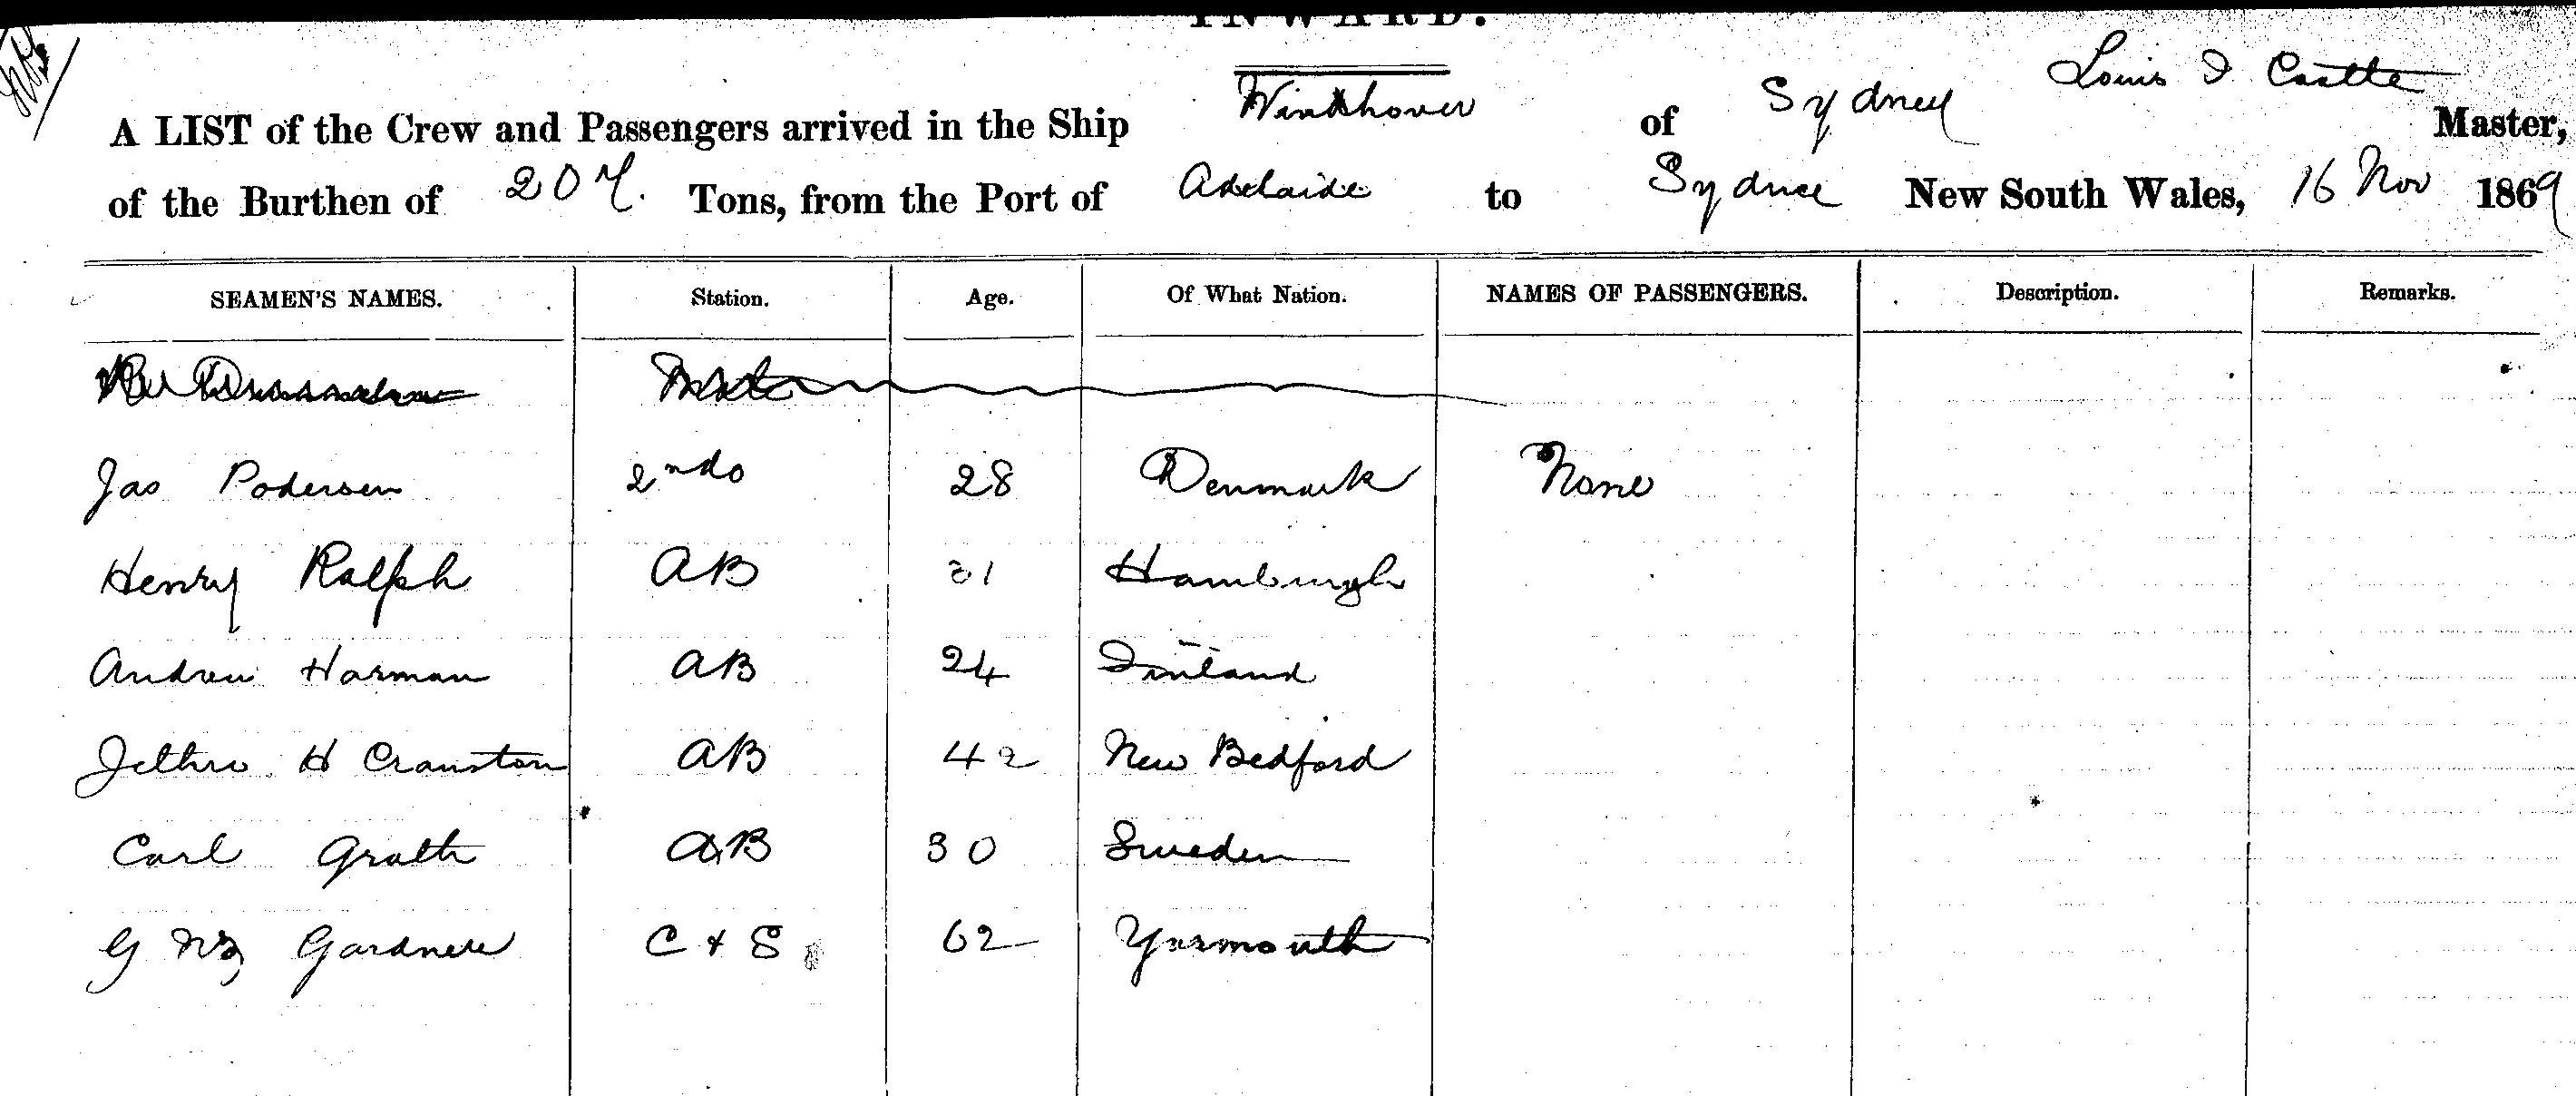 INWARD.
A LIST of the Crew and Passengers arrived in the Ship Windhover of Sydney Louis I Castle Master,
of the Burthen of 207. Tons, from the Port of Adelaide to Sydney New South Wales, 16 Nov 1869
SEAMEN'S NAMES. Station. Age. Of What Nation. NAMES OF PASSENGERS. Description. Remarks.
Mate
Jas Podersen 2nd do 28 Denmark None
Henry Ralph AB 31 Hamburgh
Andrew Harman AB 24 Finland
Jethro H Cranston AB 42 New Bedford
Carl Grath AB 30 Sweden
G Gardner C & S 62 Yarmouth